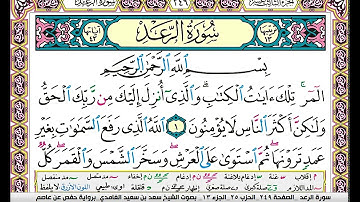 ٢٤٩
سُورَةُ الرَّعْدِ
بِسْمِ اللَّهِ الرَّحْمَٰنِ الرَّحِيمِ
الٓمٓر ۚ تِلْكَ ءَايَٰتُ الْكِتَٰبِ ۗ وَالَّذِىٓ أُنزِلَ إِلَيْكَ مِن رَّبِّكَ الْحَقُّ
وَلَٰكِنَّ أَكْثَرَ النَّاسِ لَا يُؤْمِنُونَ ١ اللَّهُ الَّذِى رَفَعَ السَّمَٰوَٰتِ بِغَيْرِ
عَمَدٍ تَرَوْنَهَا ۖ ثُمَّ اسْتَوَىٰ عَلَى الْعَرْشِ ۖ وَسَخَّرَ الشَّمْسَ وَالْقَمَرَ ۖ كُلٌّ
سورة الرعد الصفحة ٢٤٩ الحزب ٢٥ الجزء ١٣ . بصوت الشيخ سعد بن سعيد الغامدي .برواية حفص عن عاصم